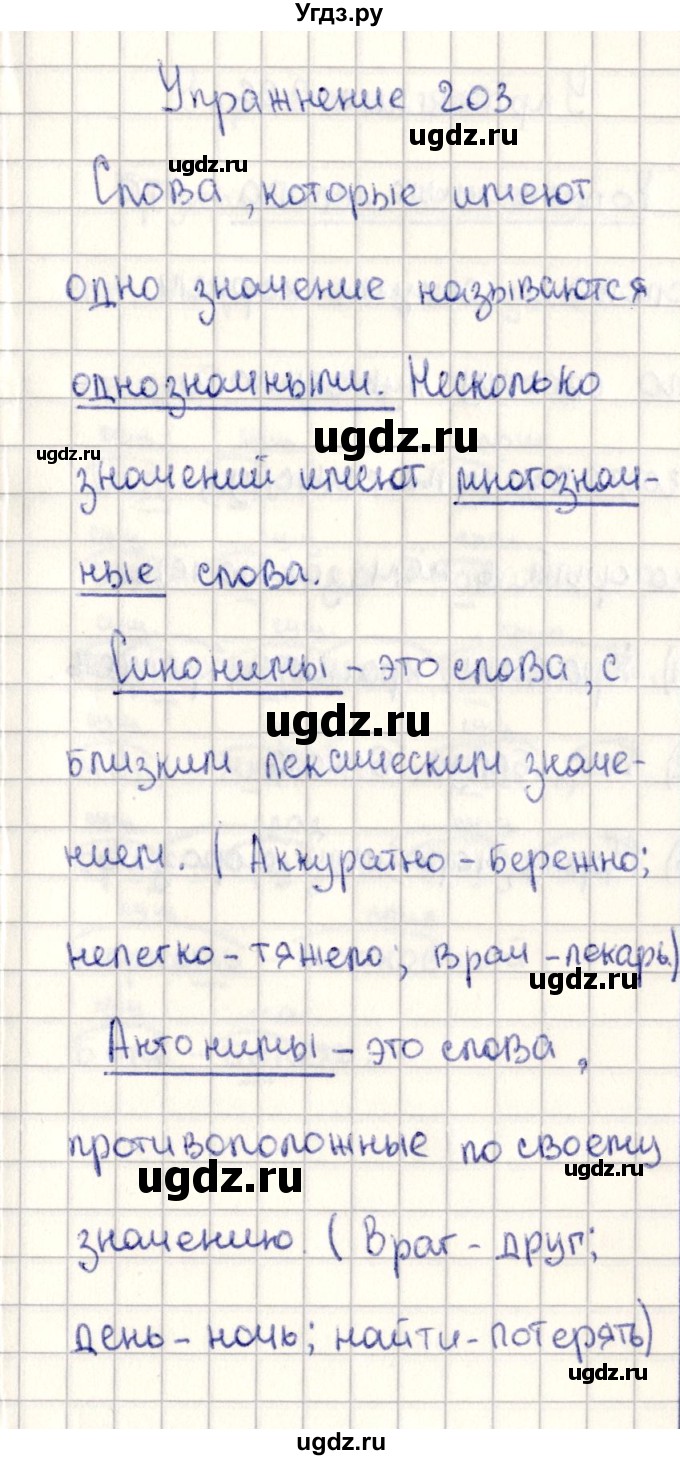 Угдз.ру
Упражнение 203
ugdz.ru
ugdz.ru
Слова, которые имеют
одно значение называются
однозначными. Несколько
ugdz.ru
ugdz.ru
значений имеют многознач-
ные слова.
Синонимы - это слова, с
ugdz.ru
близким лексическим значе-
нием. (Аккуратно - бережно;
нелегко - тяжело; врач - лекарь)
ugdz.ru
Антонимы - это слова,
противоположные по своему
ugdz.ru
ugdz.ru
значению. (Враг - друг;
день - ночь; найти - потерять)
ugdz.ru
ugdz.ru